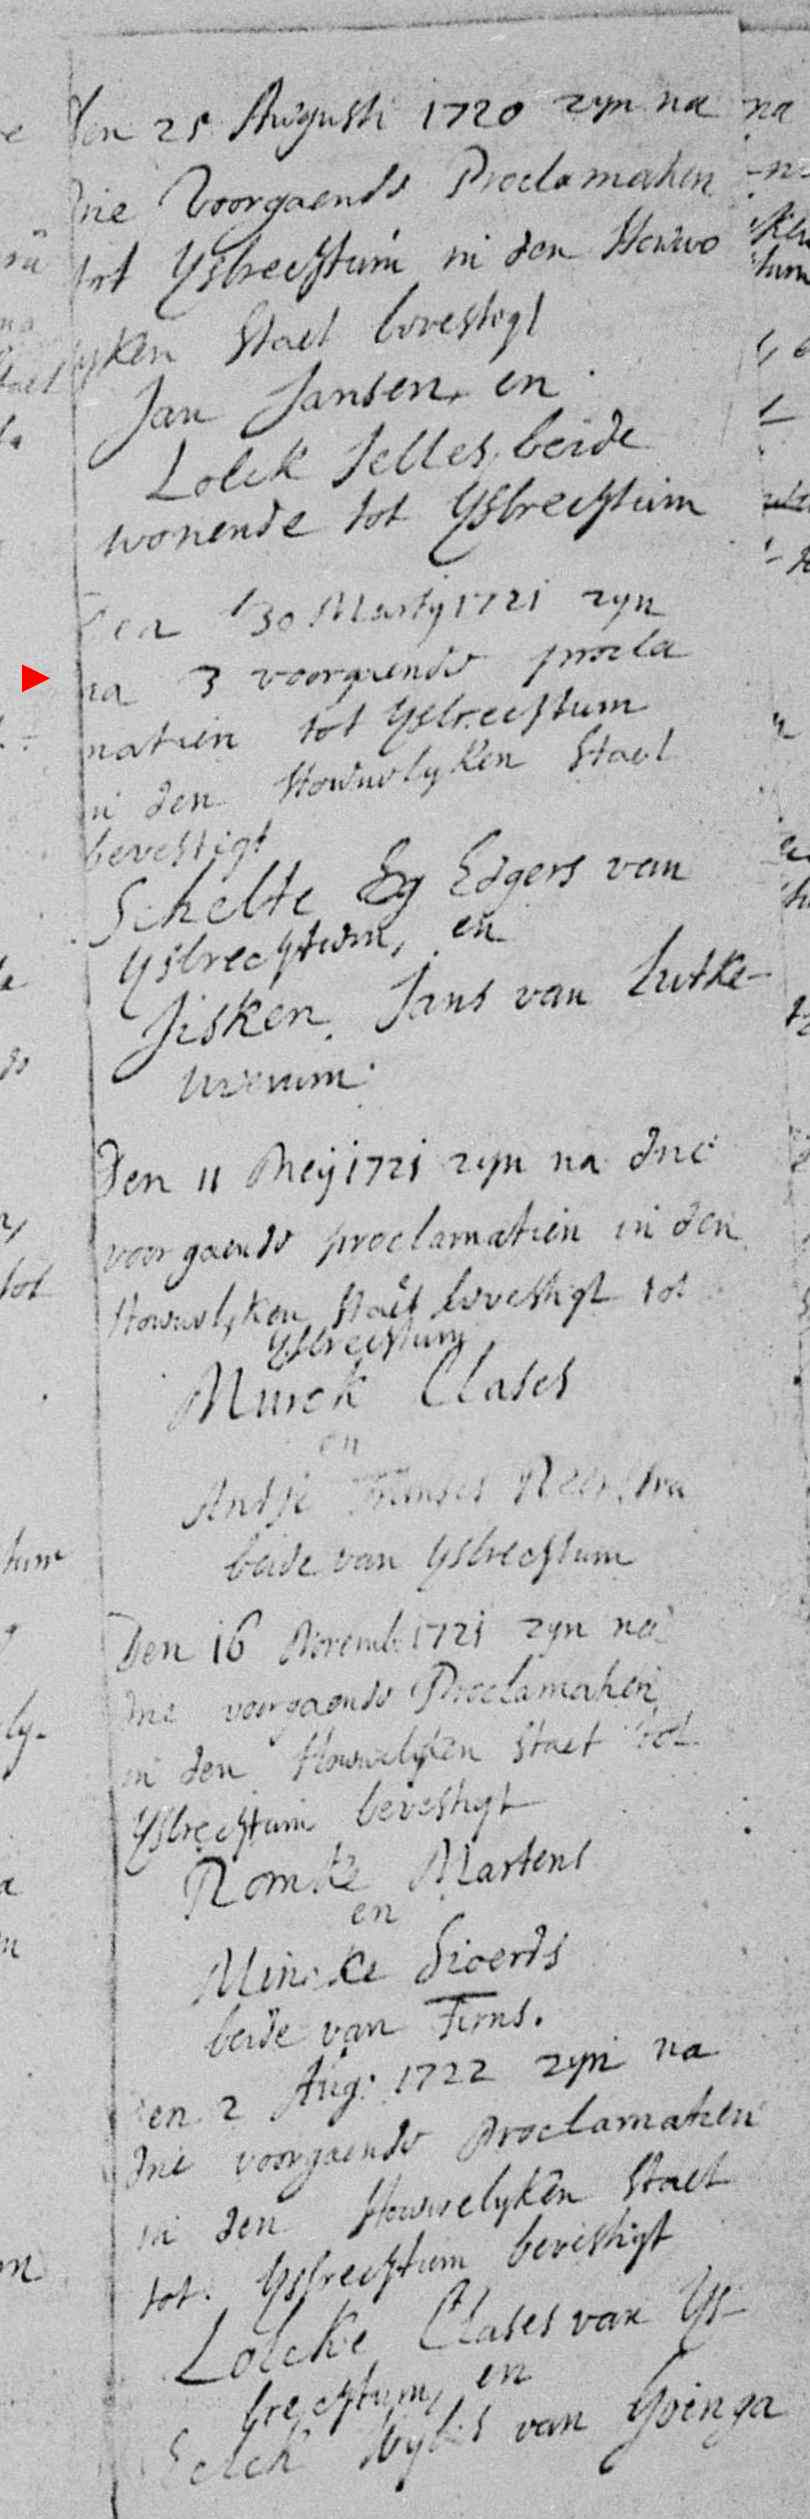 den 25 Augusti 1720 zyn na
drie Voorgaende Proclamatien
tot Ysbrechtum in den Houwe
lyken Staet bevestigt
Jan Jansen, en
Lolck Jelles, beide
wonende tot Ysbrechtum
Den 30 Martij 1721 zyn
na 3 voorgaende procla
matien tot Ysbrechtum
in den Houwelyken Staet
bevestigt
Schelte Eg Edgers van
Ysbrechtum, en
Jisken Jans van Lutke-
wierum.
Den 11 Meij 1721 zyn na drie
voorgaende proclamatien in den
Houwelyken Staet bevestigt tot
Ysbrechtum
Murck Clases
en
Antje
beide van Ysbrechtum
Den 16 Novemb. 1721 zyn na
drie voorgaende Proclamatien
in den Houwelyken Staet tot
Ysbrechtum bevestigt
Romke Martens
en
Mincke Sioerds
beide van Tirns.
den 2 Aug: 1722 zyn na
drie voorgaende Proclamatien
in den Houwelyken Staet
tot Ysbrechtum bevestigt
Lolcke Clases van Ys-
brechtum, en
Eelck van Goinga